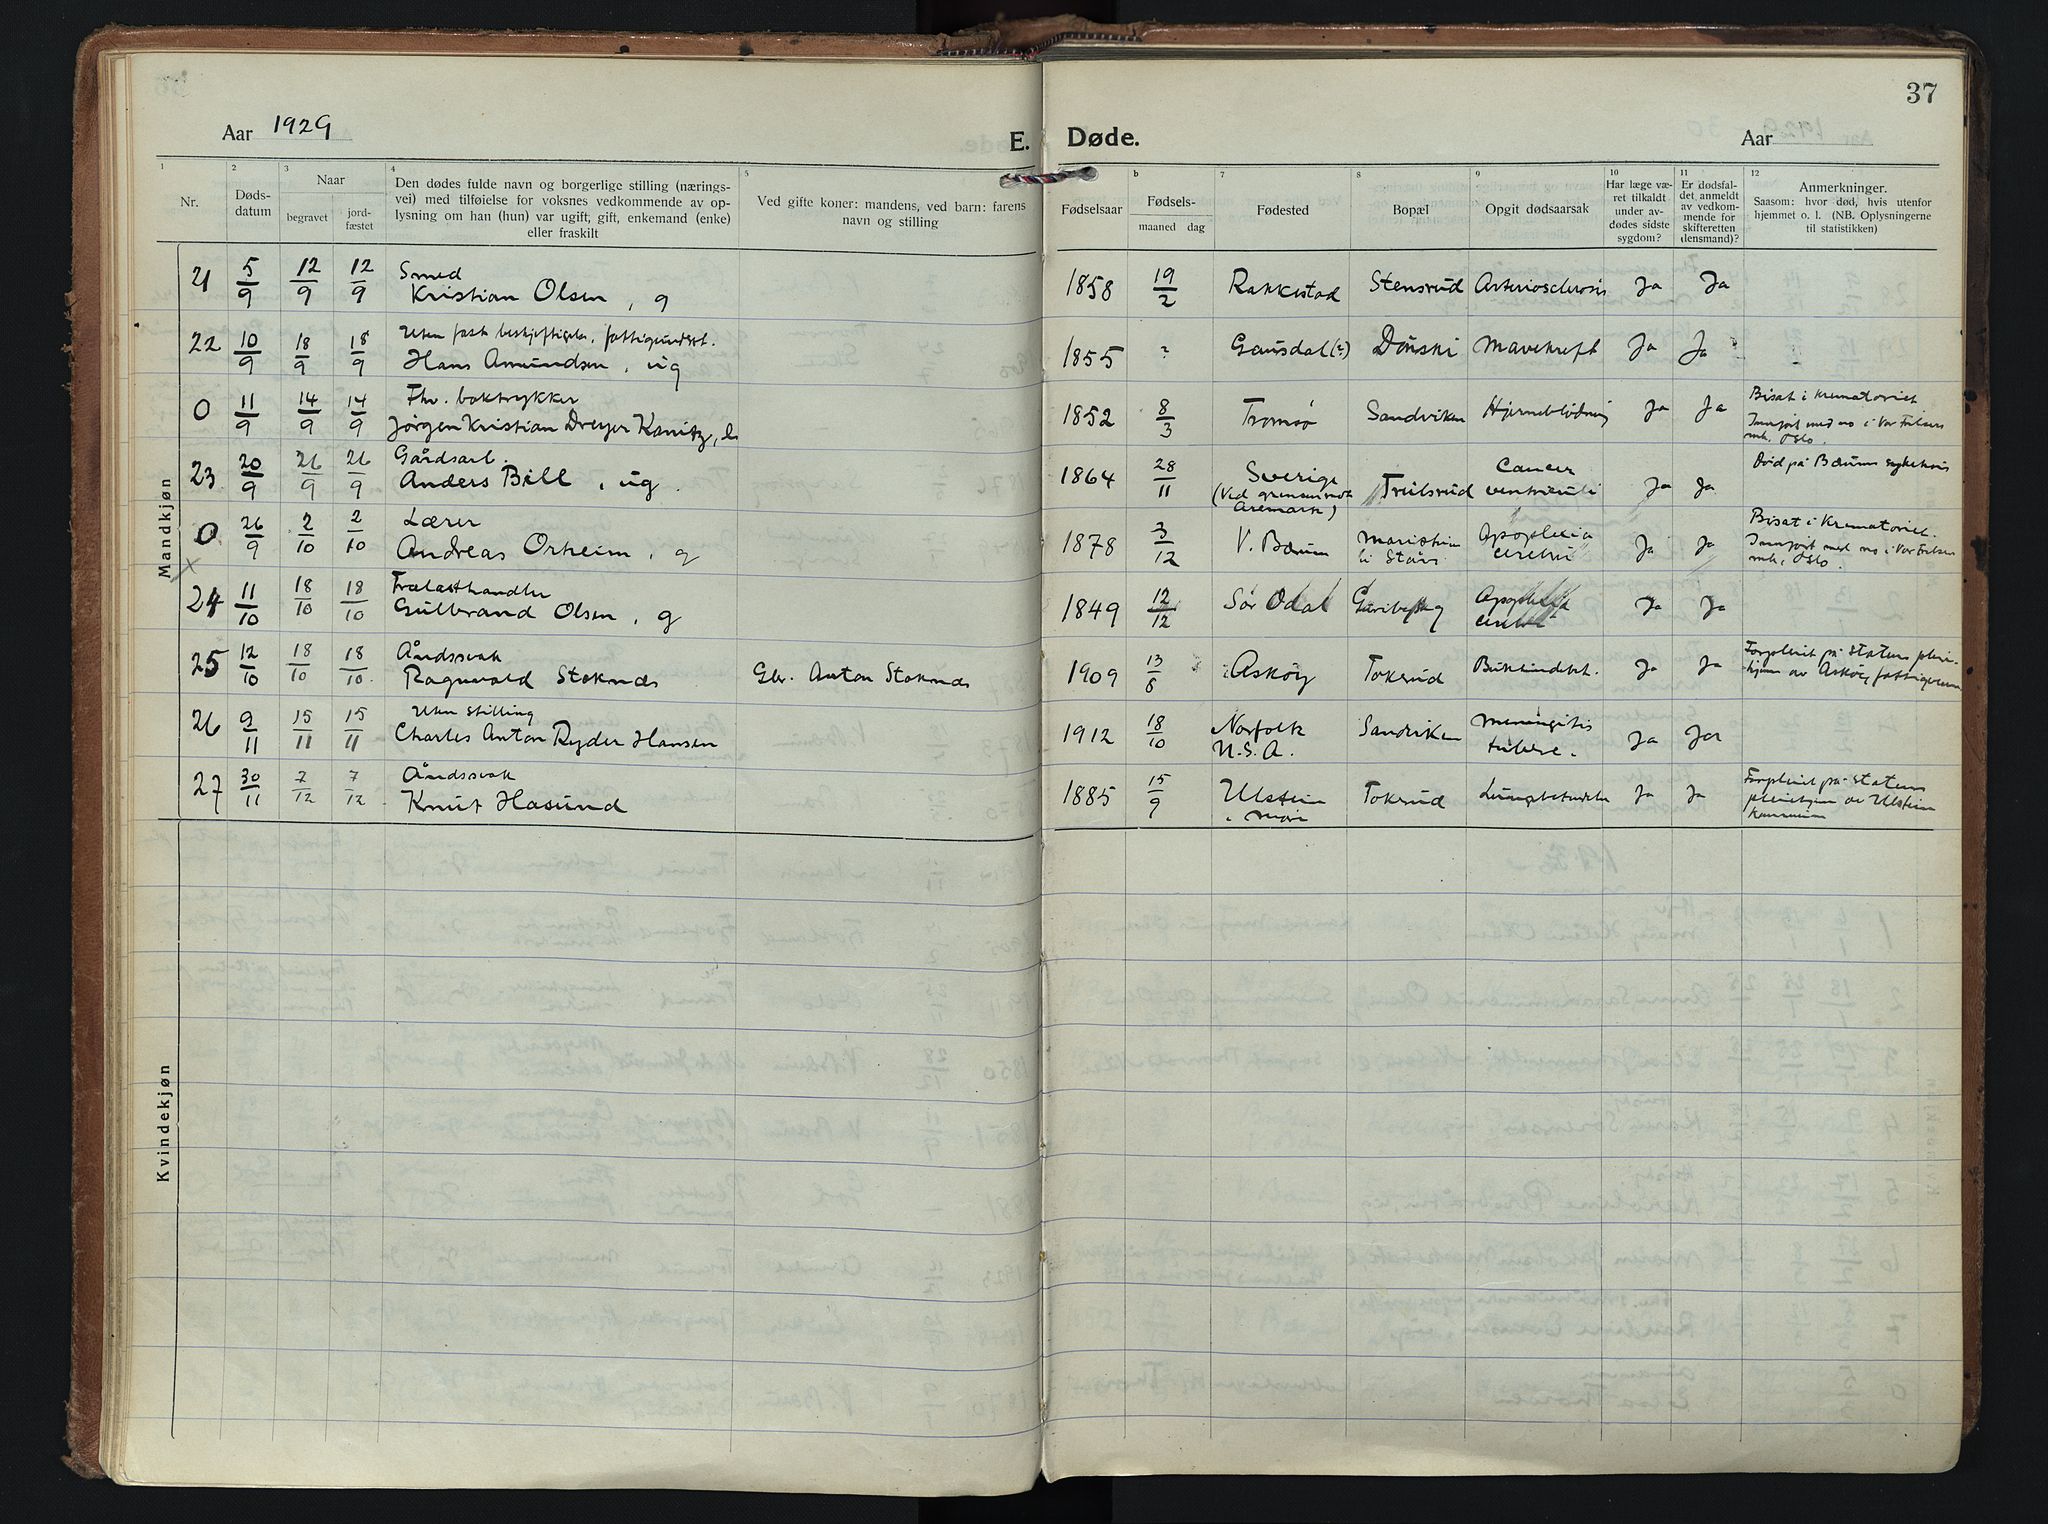 37
Aar 1929
E. Døde.
Aar
1 Nr.
2 Døds-datum
3 Naar begravet jord-fæstet
4 Den dødes fulde navn og borgerlige stilling (nærings-vei) med tilføielse for voksnes vedkommende av op-lysning om han (hun) var ugift, gift, enkemand (enke) eller fraskilt
5 Ved gifte koner: mandens, ved barn: farens navn og stilling
Fødselsaar
b Fødsels- maaned dag
7 Fødested
8 Bopæl
9 Opgit dødsaarsak
10 Har læge væ-ret tilkaldt under av-dødes sidste sygdom?
11 Er dødsfal-det anmeldt av vedkom-mende for skifteretten (lensmand)?
12 Anmerkninger. Saasom: hvor død, hvis utenfor hjemmet o. l. (NB. Oplysningerne til statistikken)
Mandkjøn
21 5/9 12/9 12/9 Smed Kristian Olsen, g 1858 19/2 Rakkestad Stensrud Arteriosclerosis Ja Ja
22 10/9 18/9 18/9 Uten fast Hans Amundsen, ug 1855 ? Gausdal (?) Dønski Mavekreft Ja Ja
0 11/9 14/9 14/9 Fhv. boktrykker Jørgen Kristian Dreyer Kanitz, 1852 8/3 Tromsø Sandviken Hjerneblødning Ja Ja Bisat i Krematoriet Innført med no i Vor Frelsers mk, Oslo.
23 20/9 26/9 26/9 Gårdsarb. Anders Bill, ug. 1864 28/11 Sverige (Ved grensen mot Aremark) Trulsrud Cancer ventriculi Ja Ja Død på Bærum sykehus
0 26/9 2/10 2/10 Lærer Andreas Orheim, g 1878 3/12 V. Bærum Apoplexia cerebri Ja Ja Bisat i Krematoriet. Innført med no i Vor Frelsers mk, Oslo.
x
24 11/10 18/10 18/10 Trælasthandler Gulbrand Olsen, g 1849 12/12 Sør Odal Apoplexia Ja Ja
25 12/10 18/10 18/10. Åndssvak Ragnvald Stoknes Gbr. Anton Stoknes 1909 13/8 Askøy Tokerud Ja Ja Forpleiet på Statens pleie-hjem av Askøy
26 9/11 15/11 15/11 Uten stilling Charles Anton Ryder Hansen 1912 18/10 Norfolk U.S.A. Sandviken Meningitis Ja Ja
27 30/11 7/12 7/12 Åndssvak Knut Hasund 1885 15/9 Ulstein Møre Tokerud Lungebetendelse Ja Ja Forpleiet på Statens pleiehjem av Ulstein kommune
Kvindekjøn